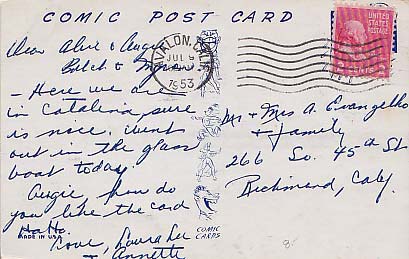 COMIC POST CARD
Dear Alice & Augie
Butch &
- Here we are
in Catalina, sure
is nice. Went
out in the glass
boat today.
Augie how do
you like the card
Ha Ha.
Love, Laura Lee
+ Annette
MADE IN U.S.A.
COMIC
CARDS
AVALON, CALIF.
JUL 9
1953
UNITED
STATES
POSTAGE
Mr & Mrs A. Evangelho
+ Family
266 So. 45th St
Richmond, Calif.
8-